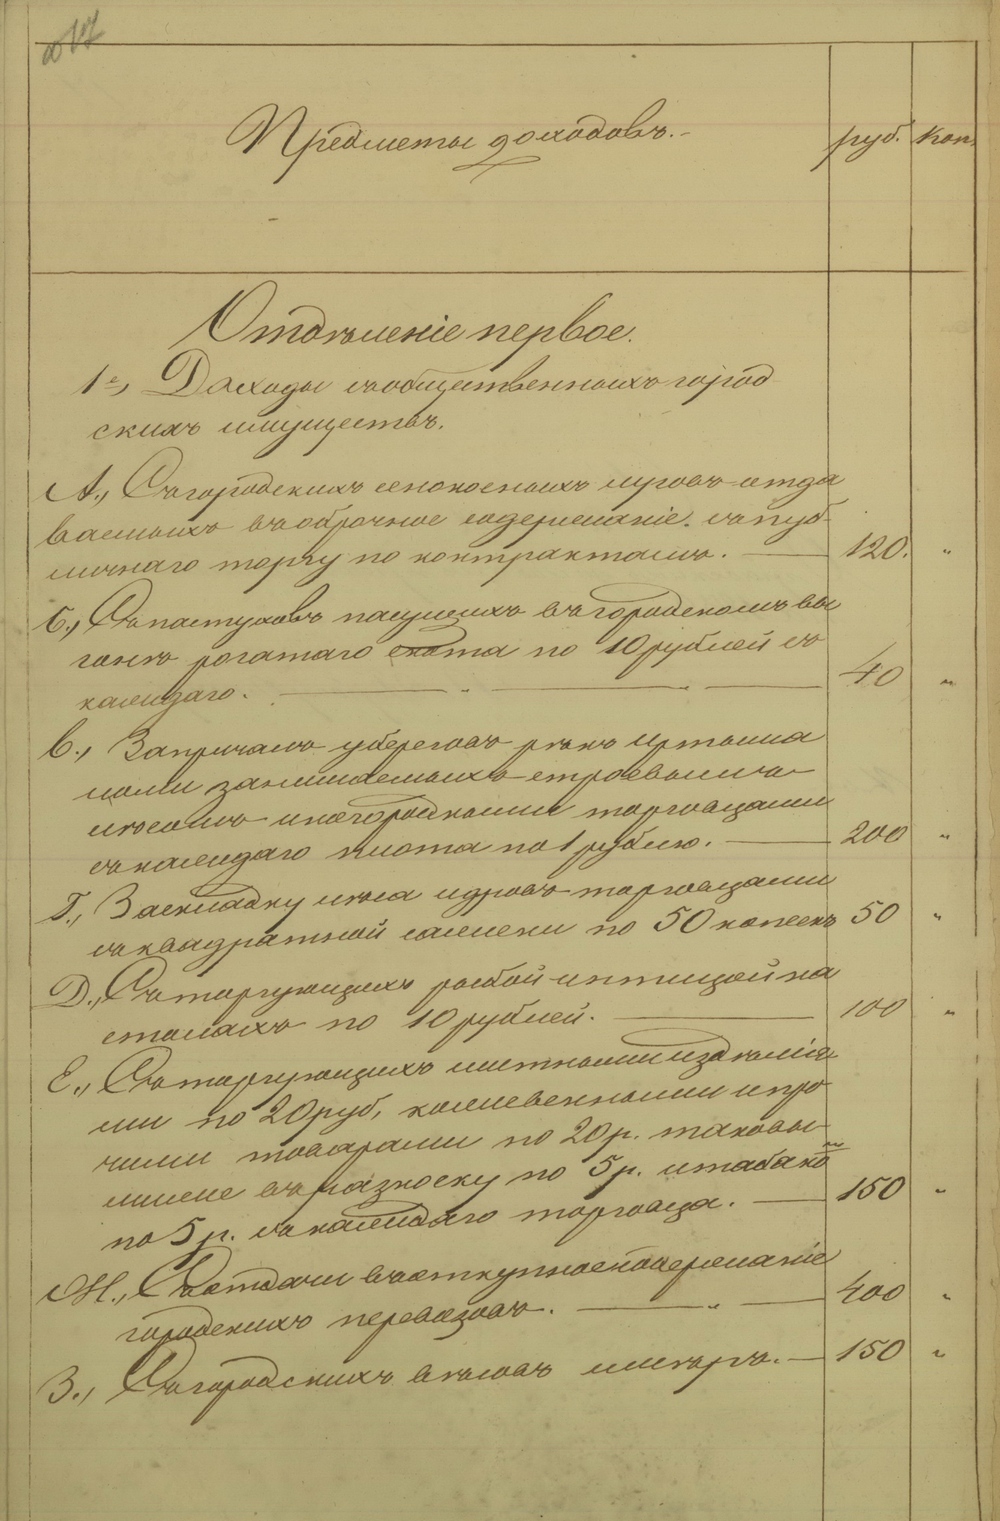 Предметы доходовъ.
руб. Коп.
Отдѣленіе первое.
1е, Доходы съ общественныхъ город
скихъ имуществъ.
А., Съ городскихъ сенокосныхъ луговъ отда
ваемыхъ въ оброчное содержаніе съ пуб-
личнаго торгу по контрактамъ. 120. "
Б., Съ пастуховъ пасущихъ въ городскомъ вы
гонѣ рогатаго скота по 10 рублей съ
каждаго. 40 "
В., За причалъ у береговъ рѣкъ Иртыша
и Оми занимаемыхъ строевымъ
лѣсомъ иногородными торговцами
съ каждаго плота по 1 рублю. 200 "
Г., За складку лѣса и дровъ торговцами
съ квадратной сажени по 50 копеекъ 50 "
Д., Съ торгующихъ рыбой и птицей на
столахъ по 10 рублей. 100 "
Е., Съ торгующихъ издѣлія
ми по 20 руб, кожевенными и про
чими товарами по 20 р. таковы-
миже въ разноску по 5 р. и табако
по 5 р. съ каждаго торговца. 150 "
Ж., Съ отдачи въ откупное содержаніе
городскихъ перевозовъ. 400 "
З., Съ городскихъ вѣсовъ и мѣръ. 150 "